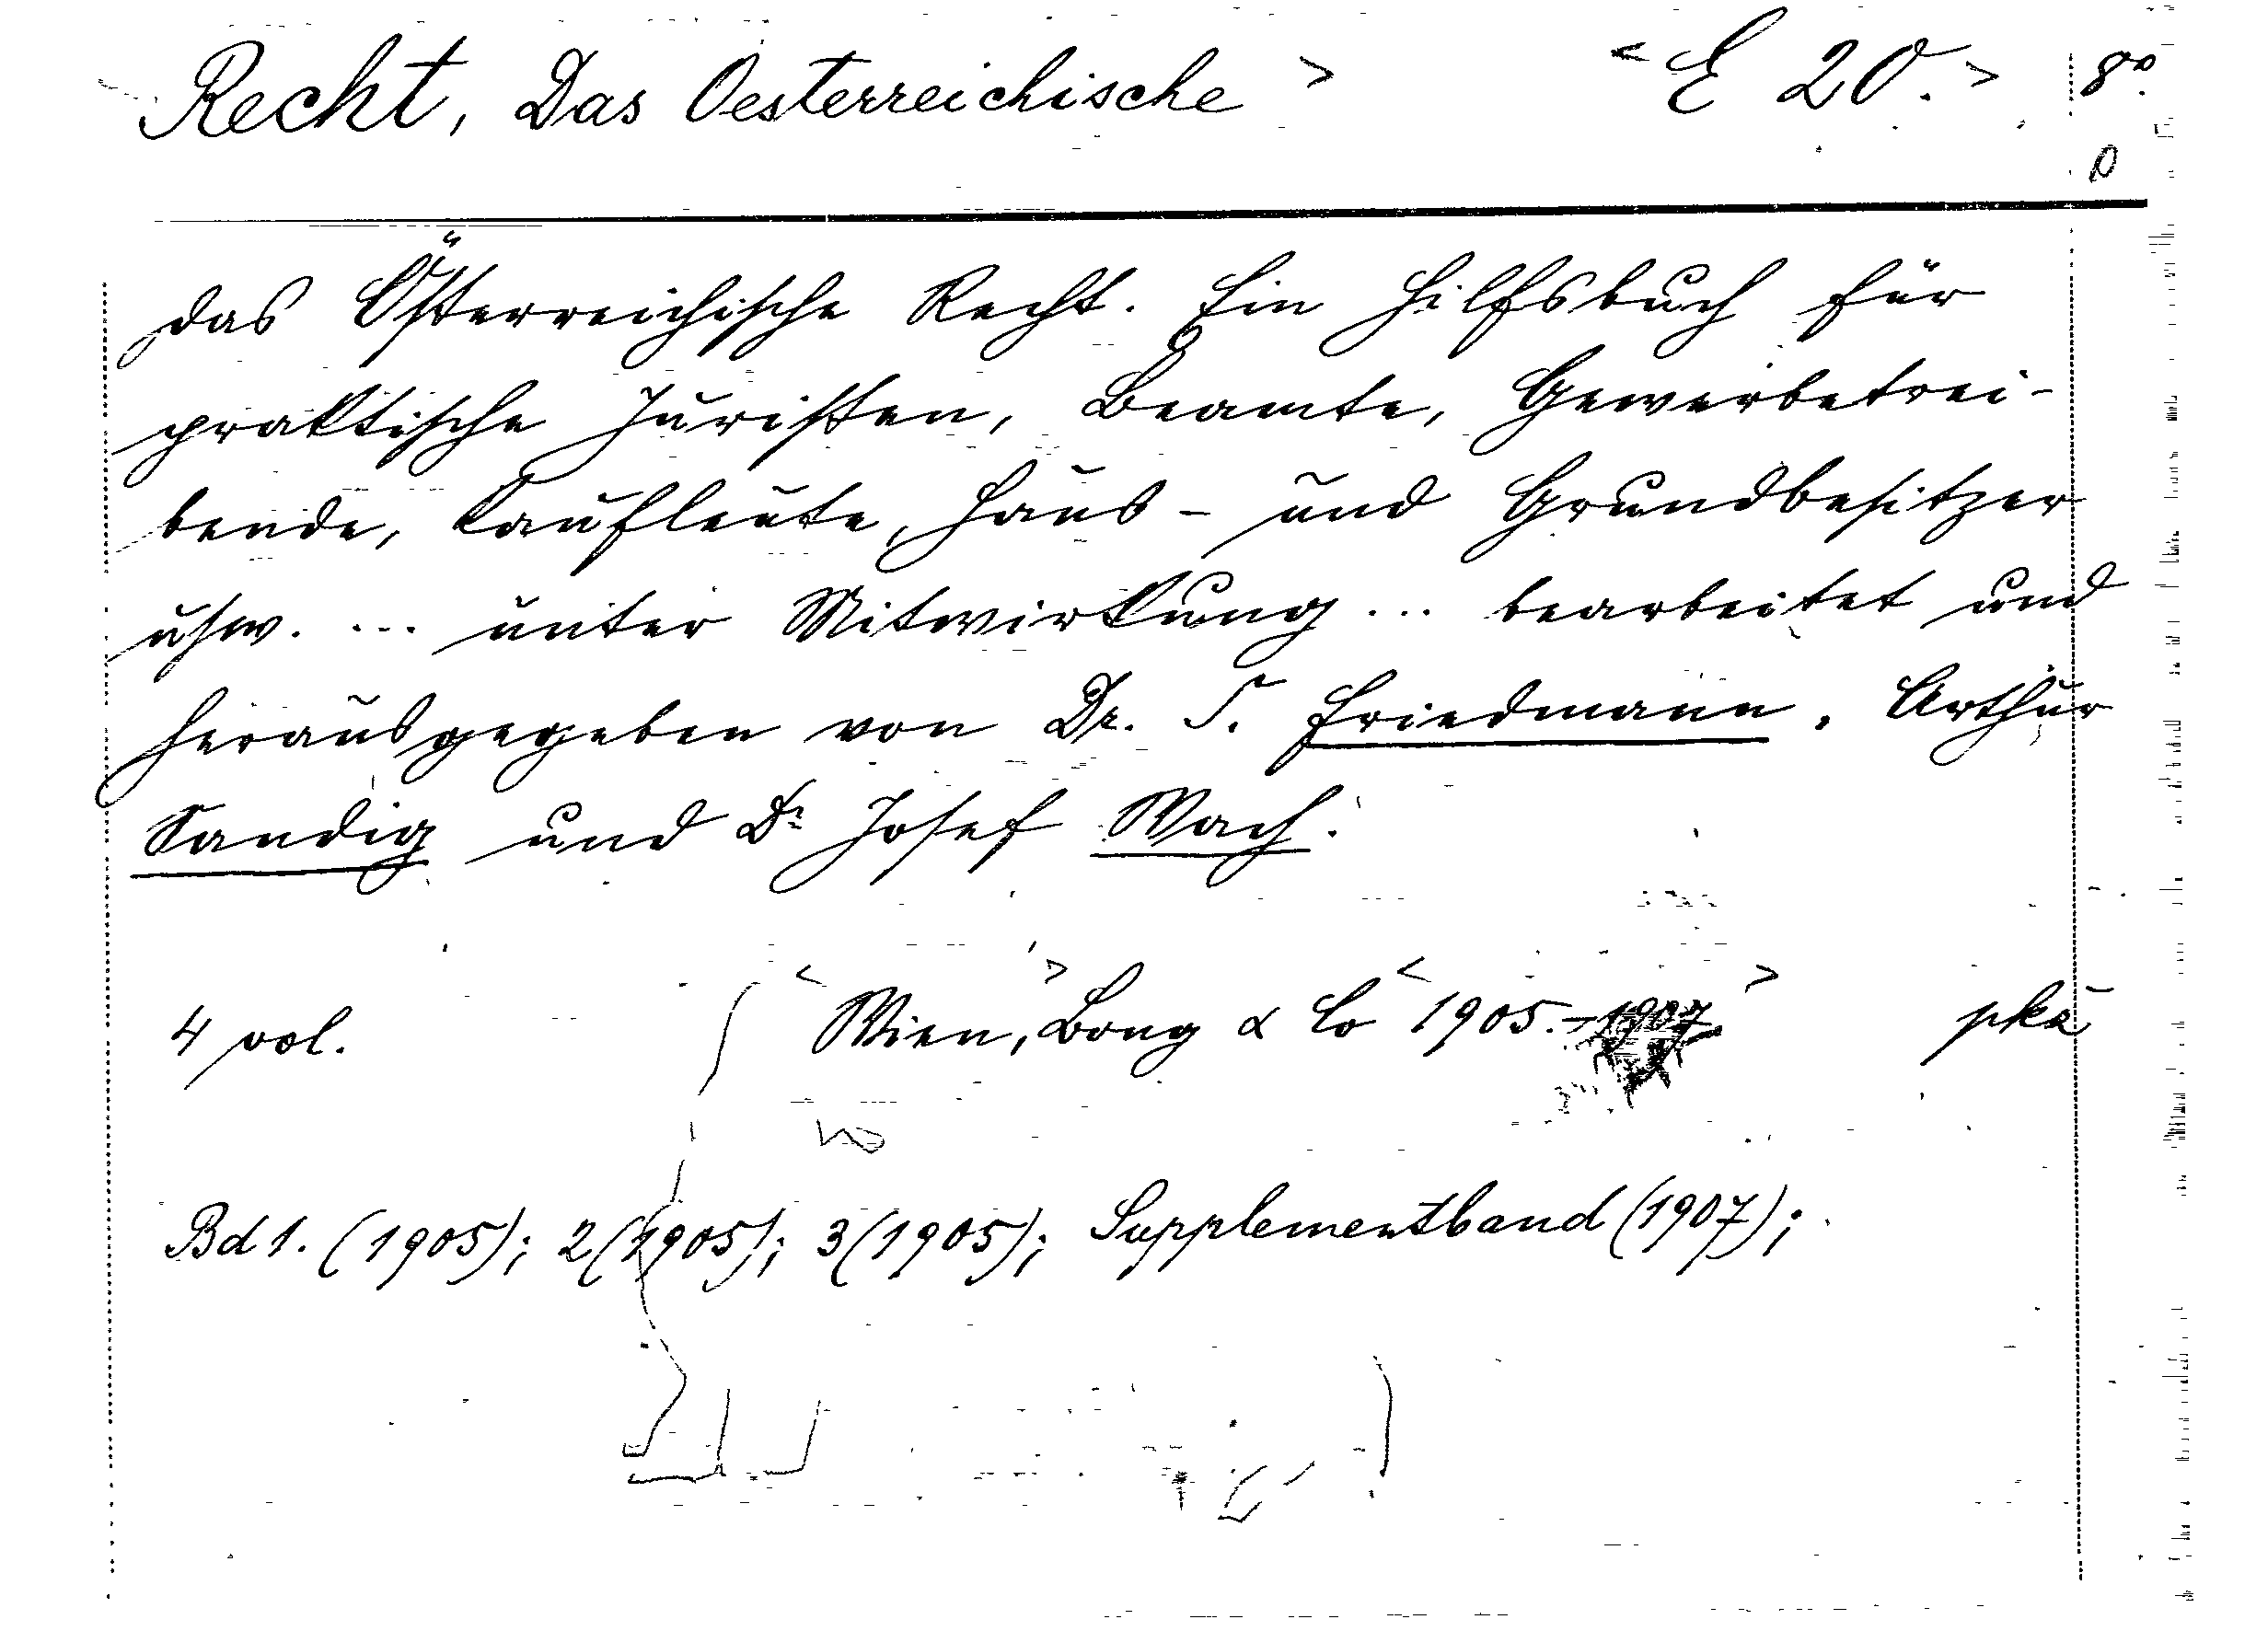 Recht, Das Oesterreichische > < E 20. > 8°
das Österreichische Recht. Ein Hilfsbuch für
praktische Juristen, Beamte, Gewerbetrei-
bende, Kaufleute, Haus- und Grundbesitzer
usw. ... unter Mitwirkung ... bearbeitet und
herausgegeben von Dr. S. Friedmann, Arthur
Sandig und Dr Josef Wach.
4 vol. < Wien, > Bong & Co < 1905.-1907. >
Bd 1. (1905); 2 (1905); 3 (1905); Supplementband (1907);